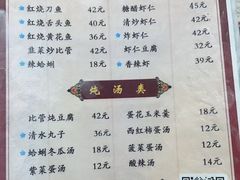 红烧刀鱼 42元
红烧舌头鱼 42元
红烧黄花鱼 36元
韭菜炒比管 42元
辣蛤蜊 18元
糖醋虾仁 42元
清炒虾仁 42元
炸虾仁 42元
虾仁豆腐 32元
香辣虾 39元
炖汤类
比管炖豆腐 42元
清水丸子 36元
蛤蜊冬瓜汤 18元
紫菜蛋汤 12元
蛋花玉米羹 18元
西红柿蛋汤 12元
菠菜蛋汤 12元
酸辣汤 14元